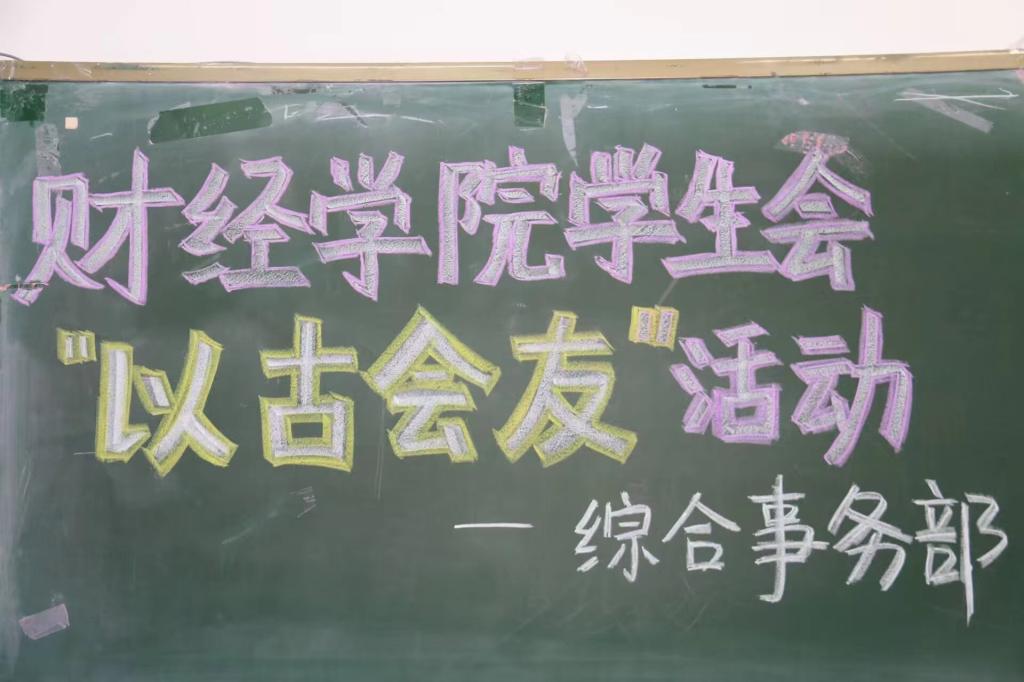 财经学院学生会
"以古会友"活动
— 综合事务部